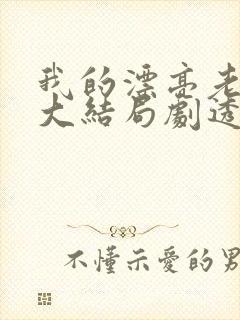 我的漂亮老
大結局劇透
不懂示愛的男